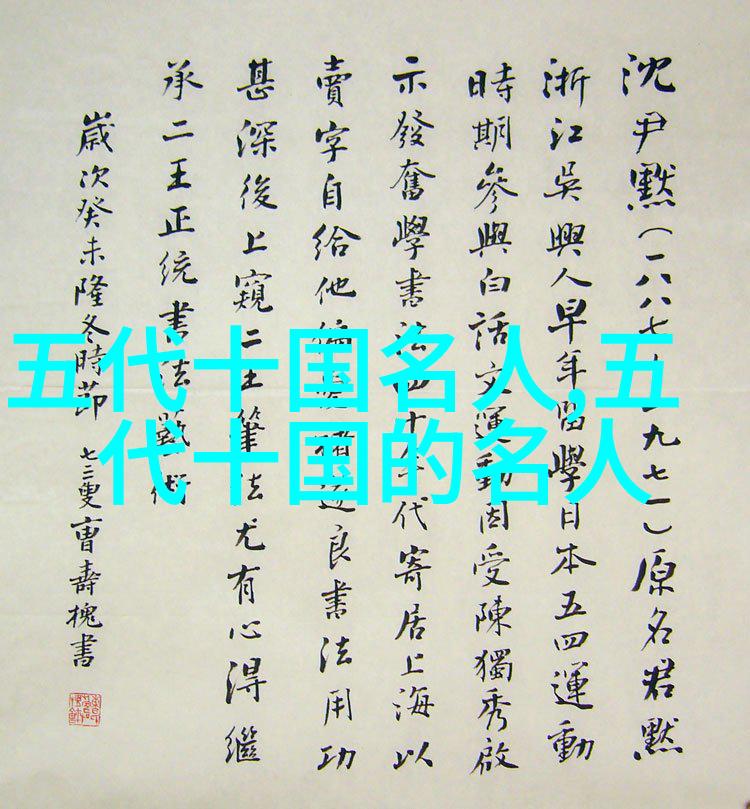 五代十国名人,五
代十国的名人
沈尹默（一八八七—一九七一）原名君默
浙江吳興人早年留學日本五四運動
時期參與白話文運動因受陳獨秀啟
示發奮學書法四十年代寄居上海以
賣字自給他褚遂良書法用功
甚深後上窺二王筆法尤有心得繼
承二王正統書法藝術
歲次癸未隆冬時節 七三叟曹壽槐書